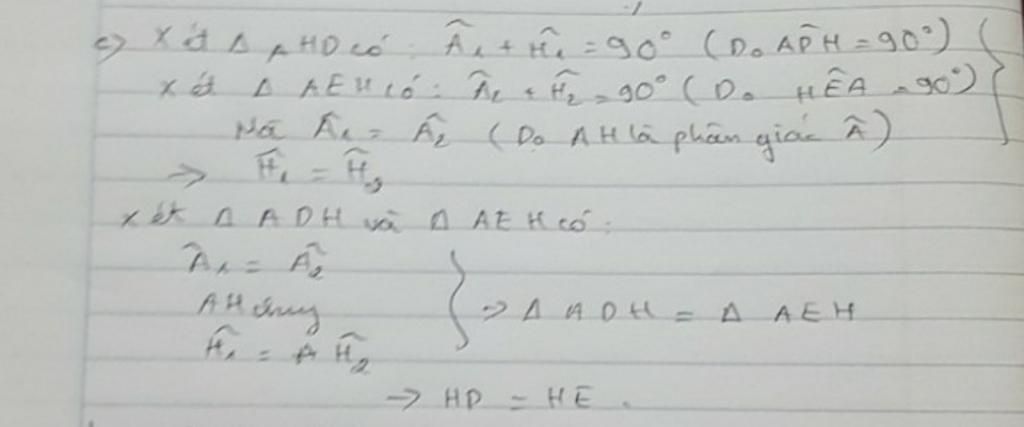 c) Xét Δ AHD có: Â₁ + Ĥ₁ = 90° (Do AD̂H = 90°)
Xét Δ AEH có: Â₂ + Ĥ₂ = 90° (Do HÊA = 90°)
Mà Â₁ = Â₂ (Do AH là phân giác Â)
=> Ĥ₁ = Ĥ₂
Xét Δ ADH và Δ AEH có:
Â₁ = Â₂
AH chung
Ĥ₁ = Ĥ₂
=> Δ ADH = Δ AEH
-> HD = HE.